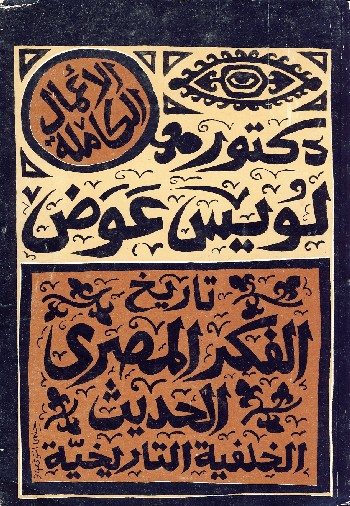 الأعمال
الكاملة
دكتور
لويس عوض
تاريخ
الفكر المصرى
الحديث
الخلفية التاريخية